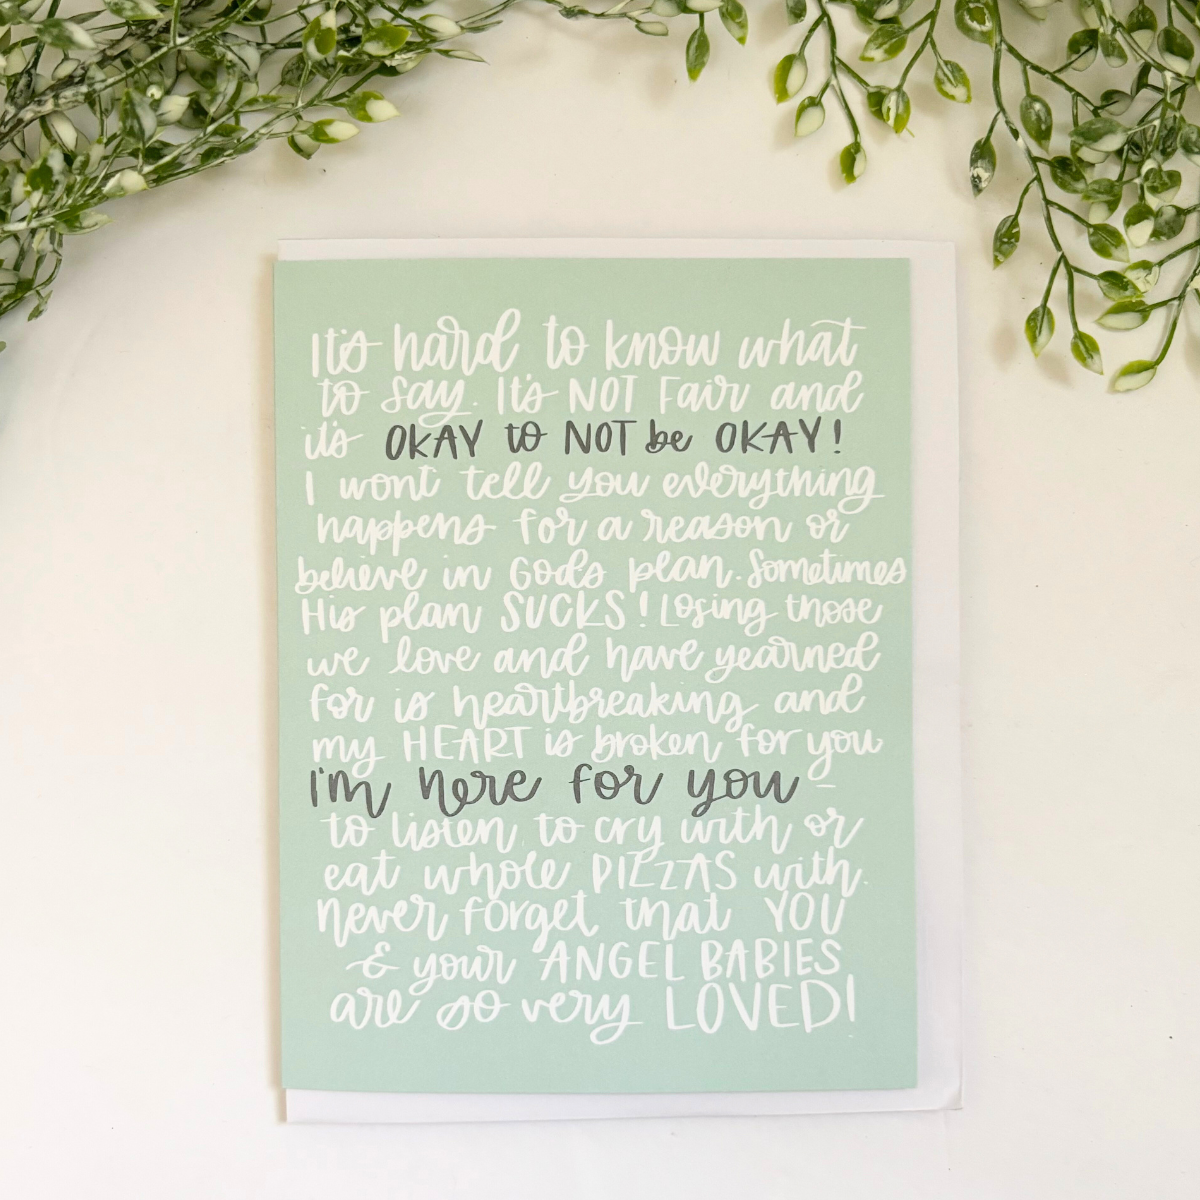 It's hard to know what
to say. It's NOT Fair and
it's OKAY to NOT be OKAY!
I won't tell you everything
happens for a reason or
believe in God's plan. Sometimes
His plan SUCKS! Losing those
we love and have yearned
for is heartbreaking and
my HEART is broken for you
I'm here for you -
to listen, to cry with or
eat whole PIZZAS with.
never forget that YOU
& your ANGEL BABIES
are so very LOVED!